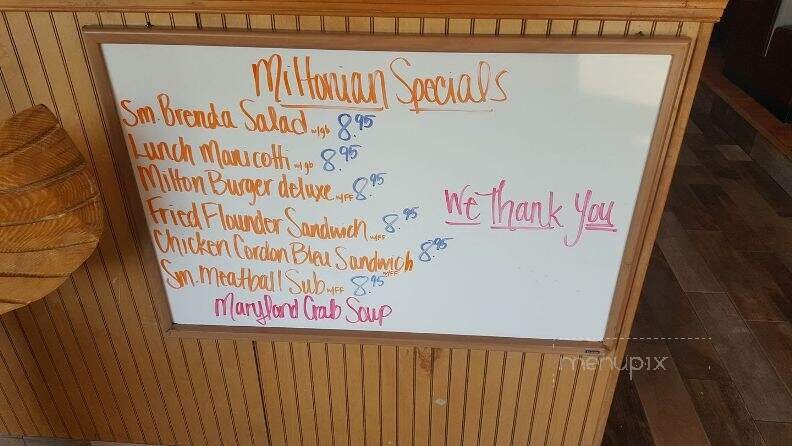 Miltonian Specials
Sm. Brenda Salad w/gb 8.95
Lunch Manicotti w/gb 8.95
Milton Burger deluxe w/FF 8.95
Fried Flounder Sandwich w/FF 8.95
Chicken Cordon Bleu Sandwich w/FF 8.95
Sm. Meatball Sub w/FF 8.95
Maryland Crab Soup
We Thank You
menupix